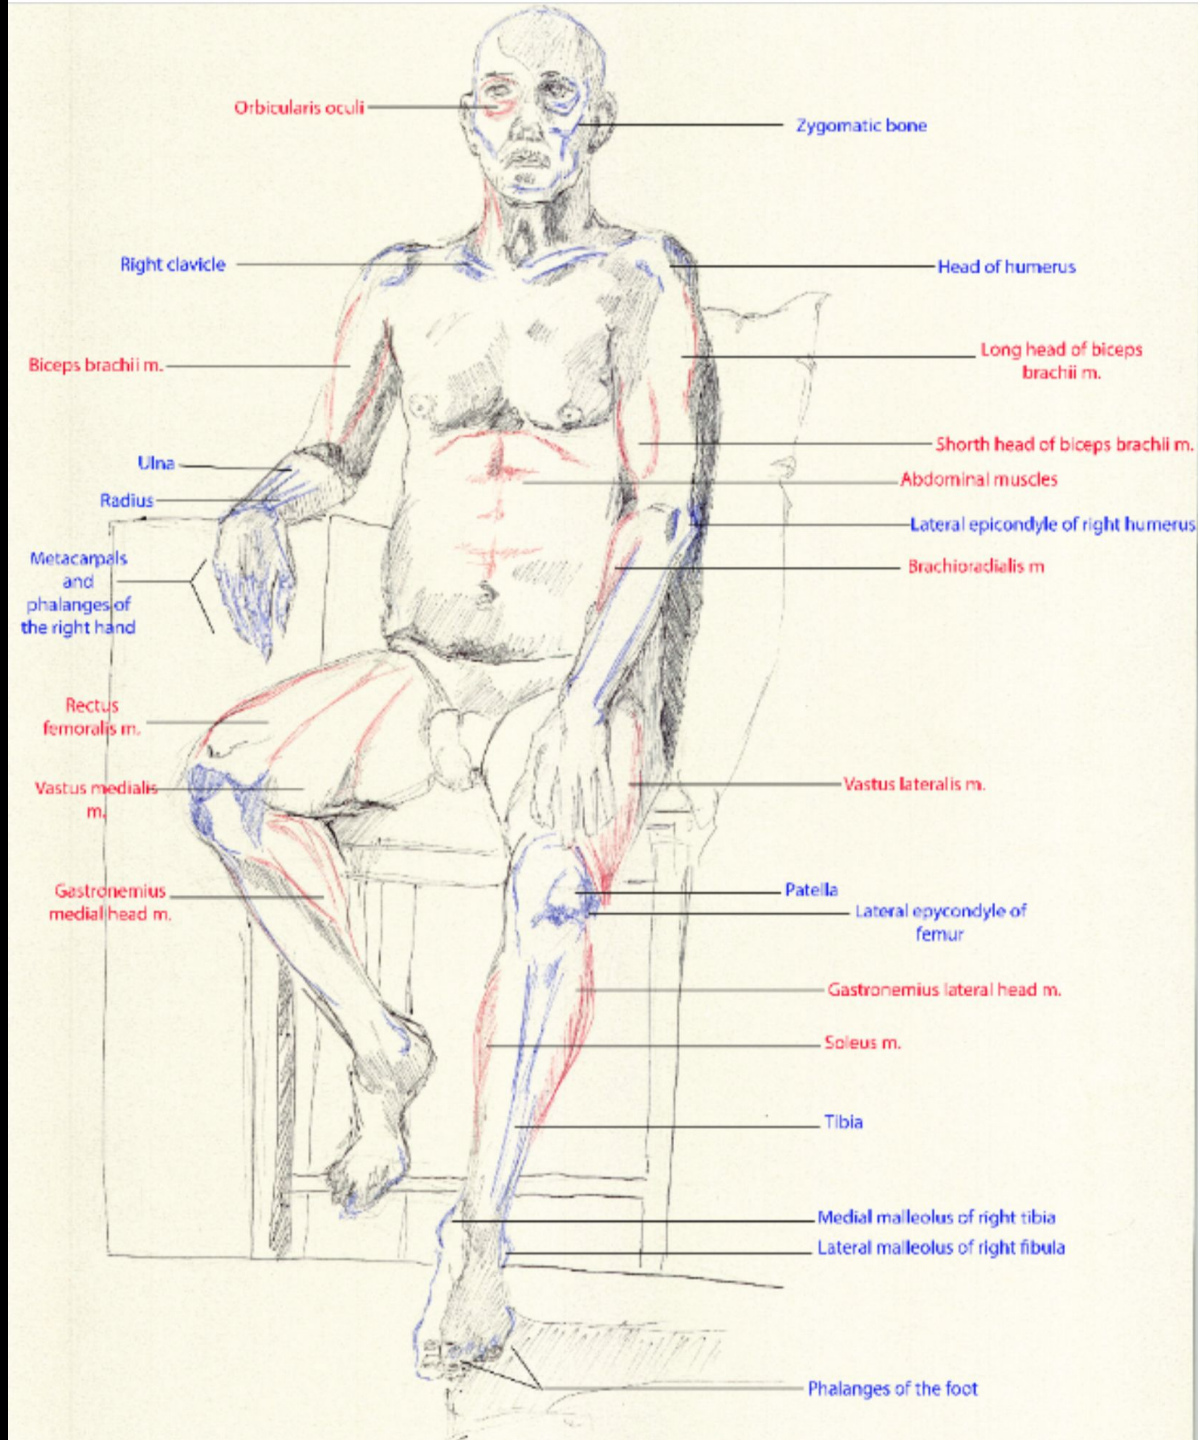 Orbicularis oculi
Zygomatic bone
Right clavicle
Head of humerus
Biceps brachii m.
Long head of biceps
brachii m.
Shorth head of biceps brachii m.
Ulna
Abdominal muscles
Radius
Lateral epicondyle of right humerus
Metacarpals
and
phalanges of
the right hand
Brachioradialis m
Rectus
femoralis m.
Vastus medialis
m.
Vastus lateralis m.
Gastronemius
medial head m.
Patella
Lateral epycondyle of
femur
Gastronemius lateral head m.
Soleus m.
Tibia
Medial malleolus of right tibia
Lateral malleolus of right fibula
Phalanges of the foot